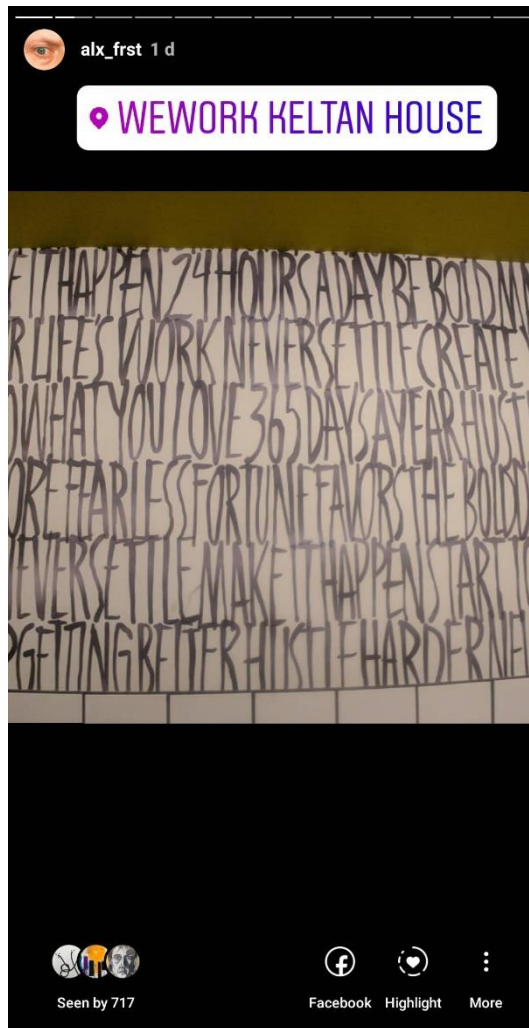 alx_frst 1 d
WEWORK KELTAN HOUSE
E IT HAPPEN 24 HOURS A DAY BE BOLD M
R LIFE'S WORK NEVER SETTLE CREATE
O WHAT YOU LOVE 365 DAYS A YEAR HUST
ORE FEARLESS FORTUNE FAVORS THE BOLD D
NEVER SETTLE MAKE IT HAPPEN START
P GETTING BETTER HUSTLE HARDER NE
Seen by 717
Facebook Highlight More